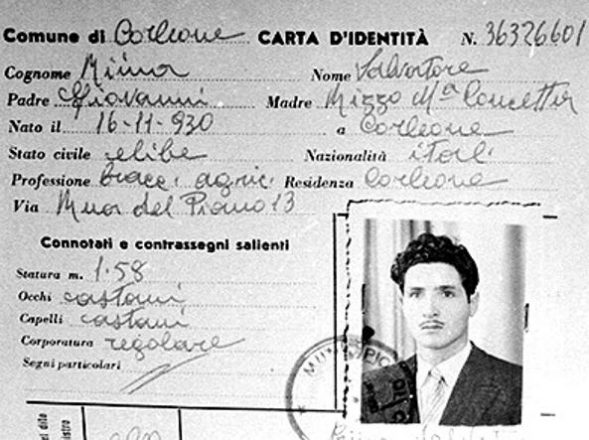 Comune di Corleone CARTA D'IDENTITÀ N. 36326601
Cognome Riina Nome Salvatore
Padre Giovanni Madre Rizzo Mª Concetta
Nato il 16-11-930 a Corleone
Stato civile celibe Nazionalità ital.
Professione bracc. agric. Residenza Corleone
Via Rua del Piano 13
Connotati e contrassegni salienti
Statura m. 1.58
Occhi castani
Capelli castani
Corporatura regolare
Segni particolari
MUNICIPIO
del dito